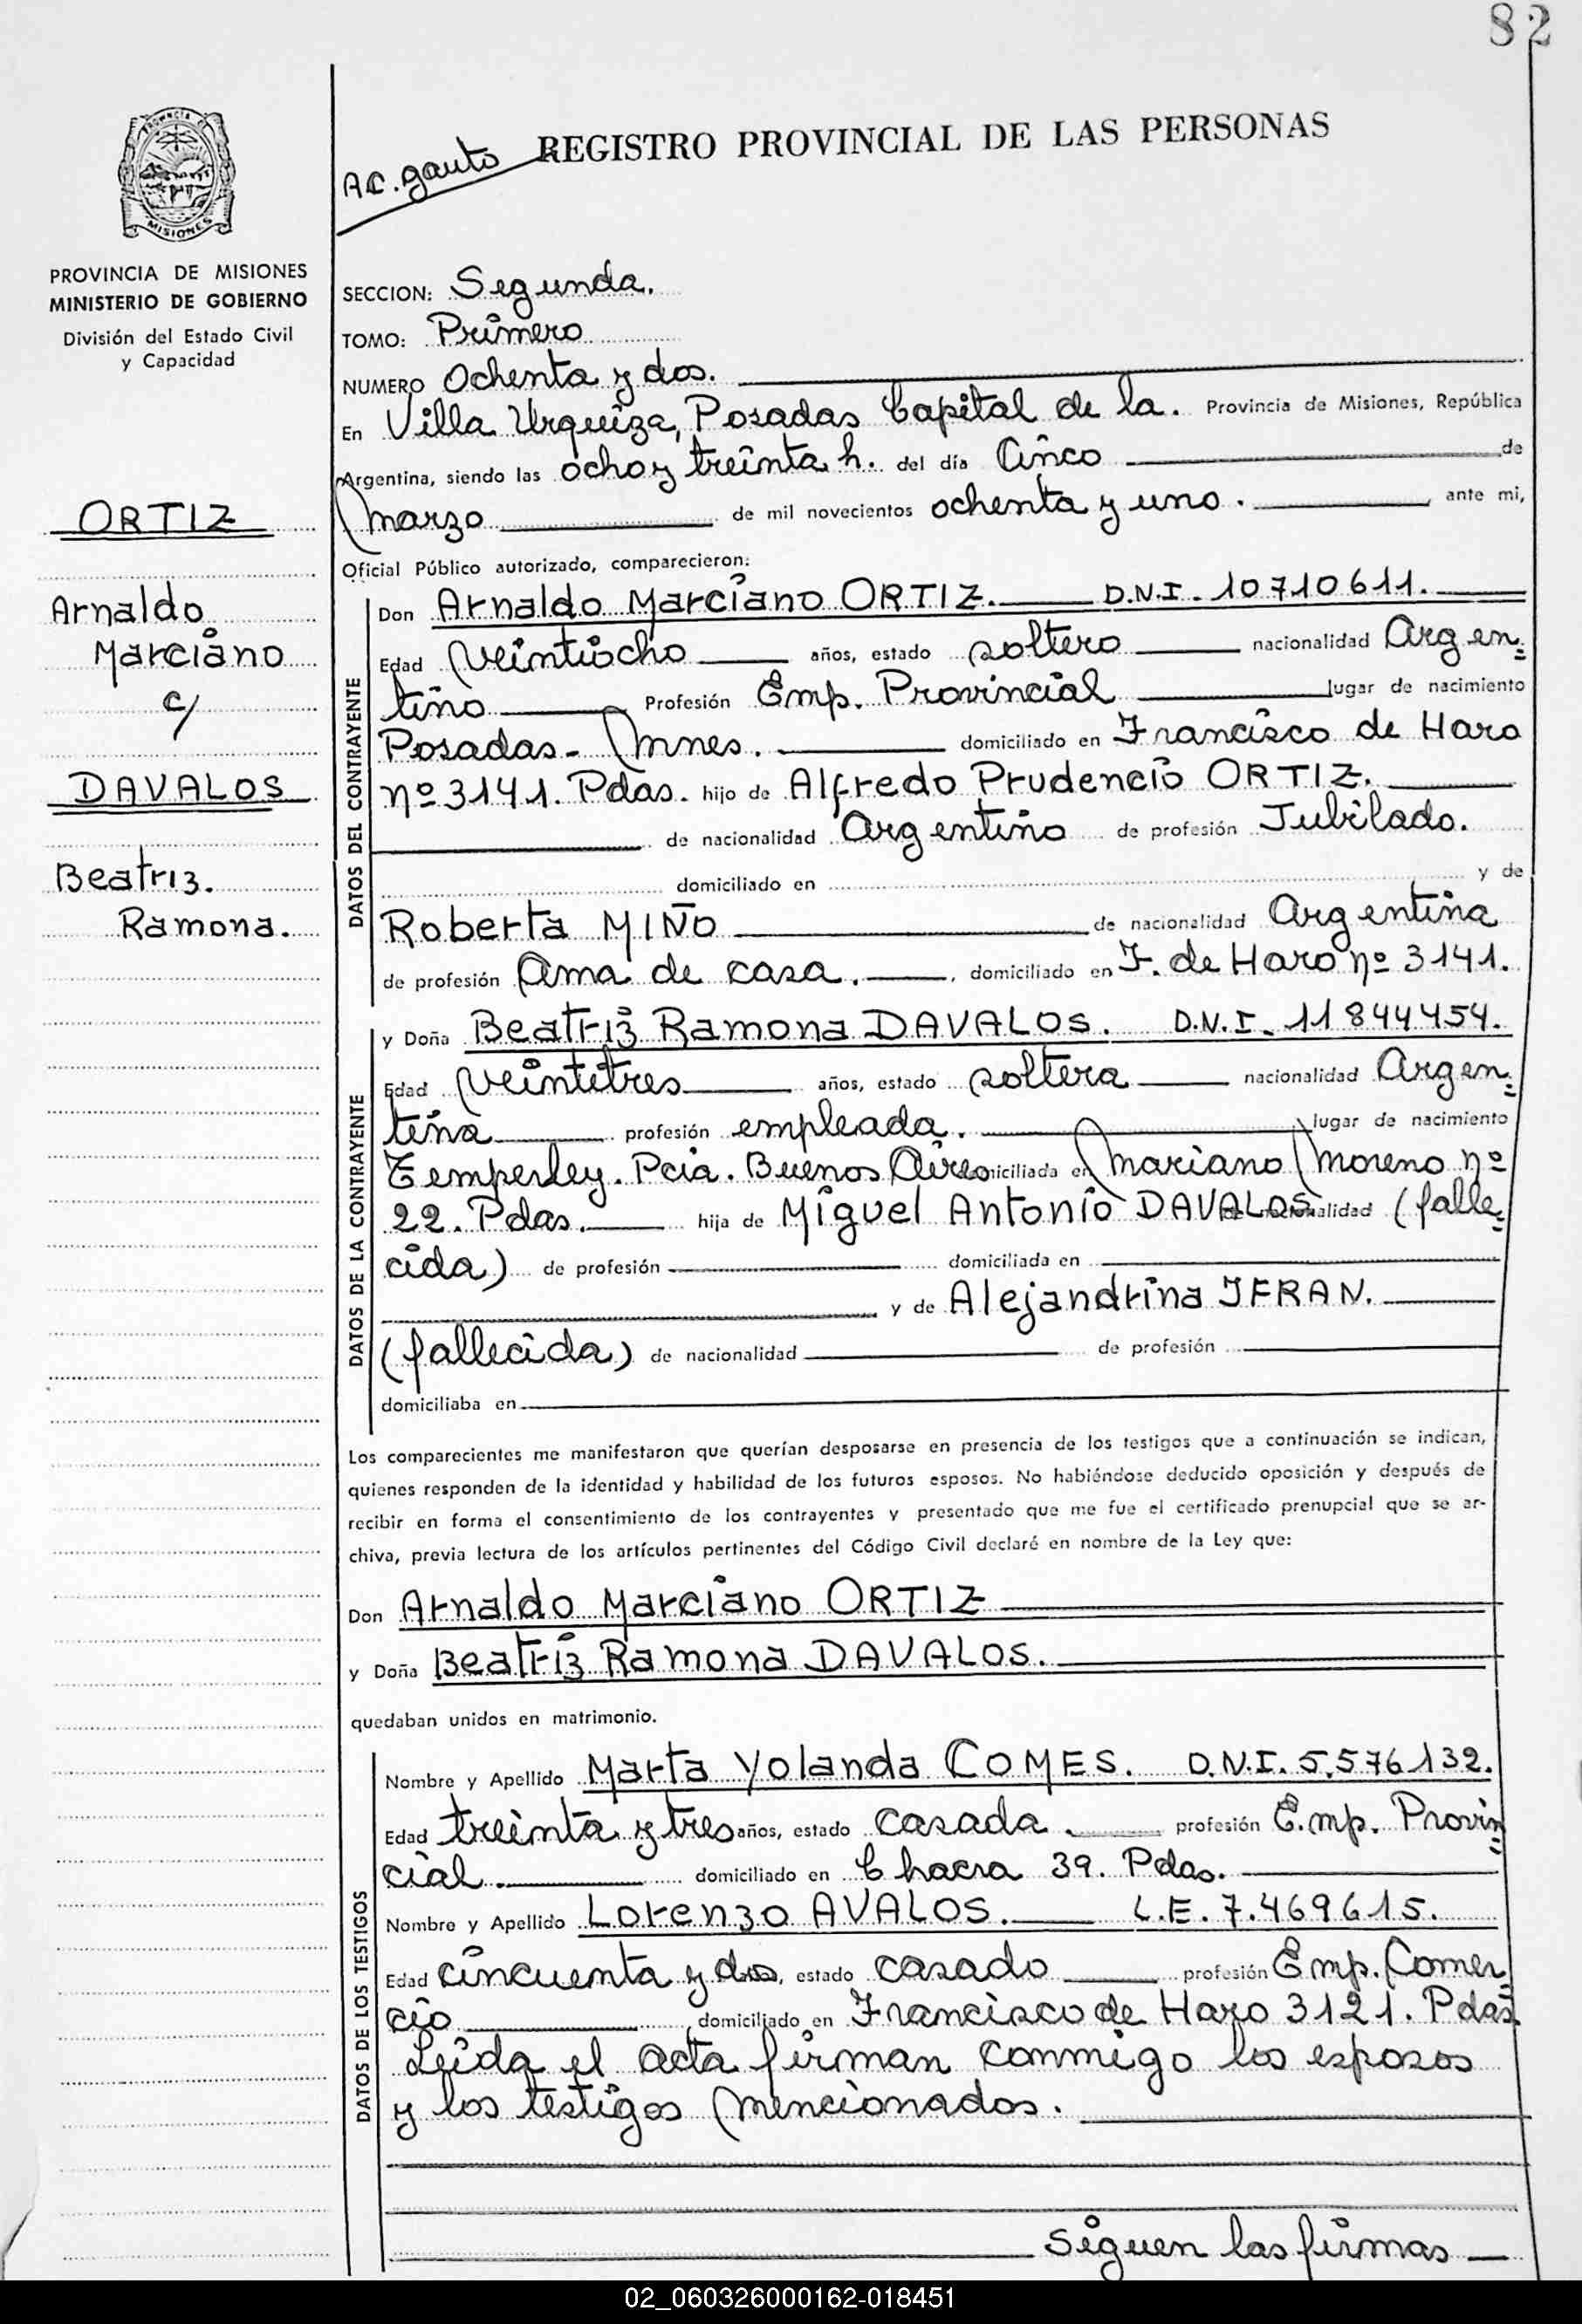 82
REGISTRO PROVINCIAL DE LAS PERSONAS
Ac. gauto
PROVINCIA DE MISIONES
MINISTERIO DE GOBIERNO
División del Estado Civil
y Capacidad
ORTIZ
Arnaldo
Marciano
c/
DAVALOS
Beatriz.
Ramona.
SECCION: Segunda.
TOMO: Primero
NUMERO Ochenta y dos.
En Villa Urquiza, Posadas Capital de la. Provincia de Misiones, República
Argentina, siendo las ocho y treinta h. del día Cinco de
marzo de mil novecientos ochenta y uno. ante mi,
Oficial Público autorizado, comparecieron:
DATOS DEL CONTRAYENTE
Don Arnaldo Marciano ORTIZ. D.N.I. 10710611.
Edad veintiocho años, estado soltero nacionalidad Argen=
tino Profesión Emp. Provincial lugar de nacimiento
Posadas - Mnes. domiciliado en Francisco de Haro
nº 3141. Pdas. hijo de Alfredo Prudencio ORTIZ.
de nacionalidad Argentino de profesión Jubilado.
domiciliado en y de
Roberta MIÑO de nacionalidad Argentina
de profesión Ama de casa. domiciliado en F. de Haro nº 3141.
DATOS DE LA CONTRAYENTE
y Doña Beatriz Ramona DAVALOS. D.N.I. 11844454.
Edad veintitres años, estado soltera nacionalidad Argen=
tina profesión empleada. lugar de nacimiento
Temperley. Pcia. Buenos Aires domiciliada en Mariano Moreno nº
22. Pdas. hija de Miguel Antonio DAVALOS de nacionalidad (falle=
cida) de profesión domiciliada en
y de Alejandrina IFRAN.
(fallecida) de nacionalidad de profesión
domiciliaba en
Los comparecientes me manifestaron que querían desposarse en presencia de los testigos que a continuación se indican,
quienes responden de la identidad y habilidad de los futuros esposos. No habiéndose deducido oposición y después de
recibir en forma el consentimiento de los contrayentes y presentado que me fue el certificado prenupcial que se ar-
chiva, previa lectura de los artículos pertinentes del Código Civil declaré en nombre de la Ley que:
Don Arnaldo Marciano ORTIZ
y Doña Beatriz Ramona DAVALOS.
quedaban unidos en matrimonio.
DATOS DE LOS TESTIGOS
Nombre y Apellido Marta Yolanda COMES. D.N.I. 5.576132.
Edad treinta y tres años, estado casada. profesión Emp. Provin=
cial. domiciliado en Chacra 39. Pdas.
Nombre y Apellido Lorenzo AVALOS. L.E. 7.469615.
Edad cincuenta y dos, estado casado profesión Emp. Comer
cio domiciliado en Francisco de Haro 3121. Pdas.
Leida el acta firman conmigo los esposos
y los testigos mencionados.
Siguen las firmas
02_060326000162-018451